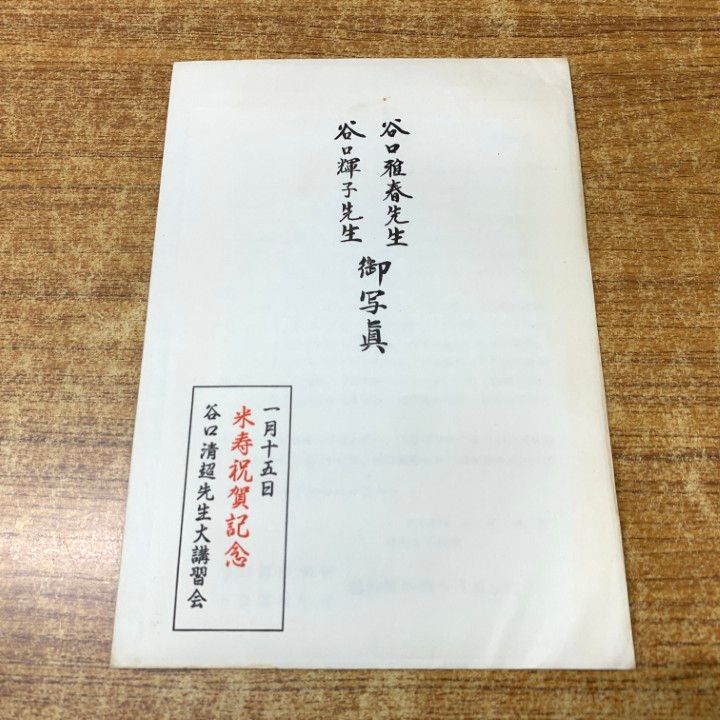 谷口雅春先生
谷口輝子先生
御写真
一月十五日
米寿祝賀記念
谷口清超先生大講習会